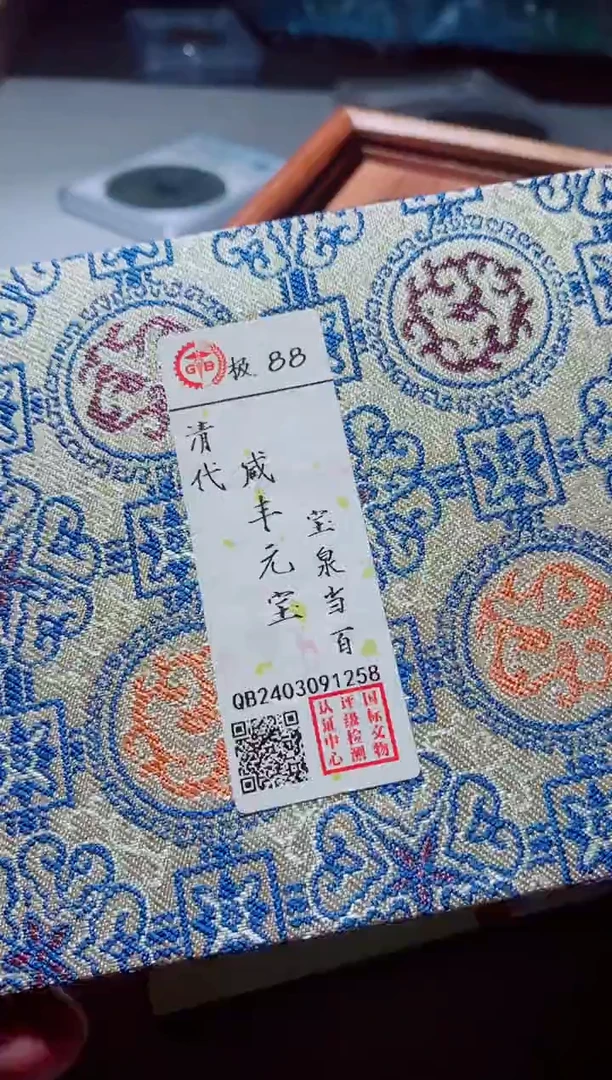 GB 极 88
清代
咸丰元宝
宝泉当百
QB2403091258
国标文物
评级检测
认证中心